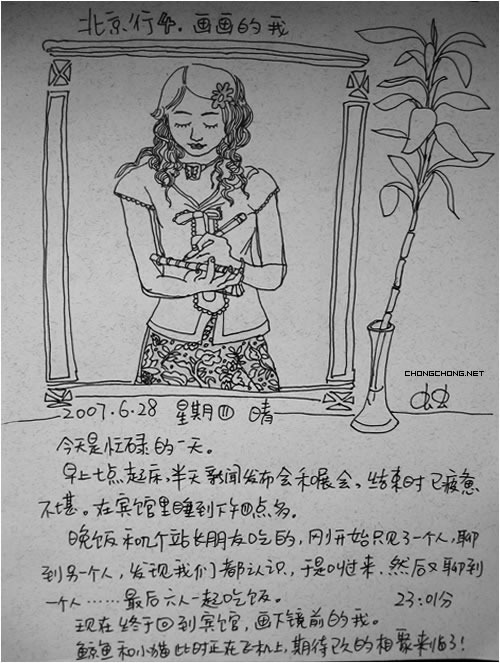 北京行中.画画的我
CHONGCHONG.NET
2007.6.28 星期四 晴
今天是忙碌的一天。
早上七点起床,半天新闻发布会和展会。结束时已疲惫
不堪。在宾馆里睡到下午四点多。
晚饭和几个站长朋友吃的,刚开始只见了一个人,聊
到另一个人,发现我们都认识,于是叫过来,然后又聊到
一个人……最后六人一起吃饭。 23:01分
现在终于回到宾馆,画下镜前的我。
鲸鱼和小猫此时正在飞机上,期待已久的相聚来临了!